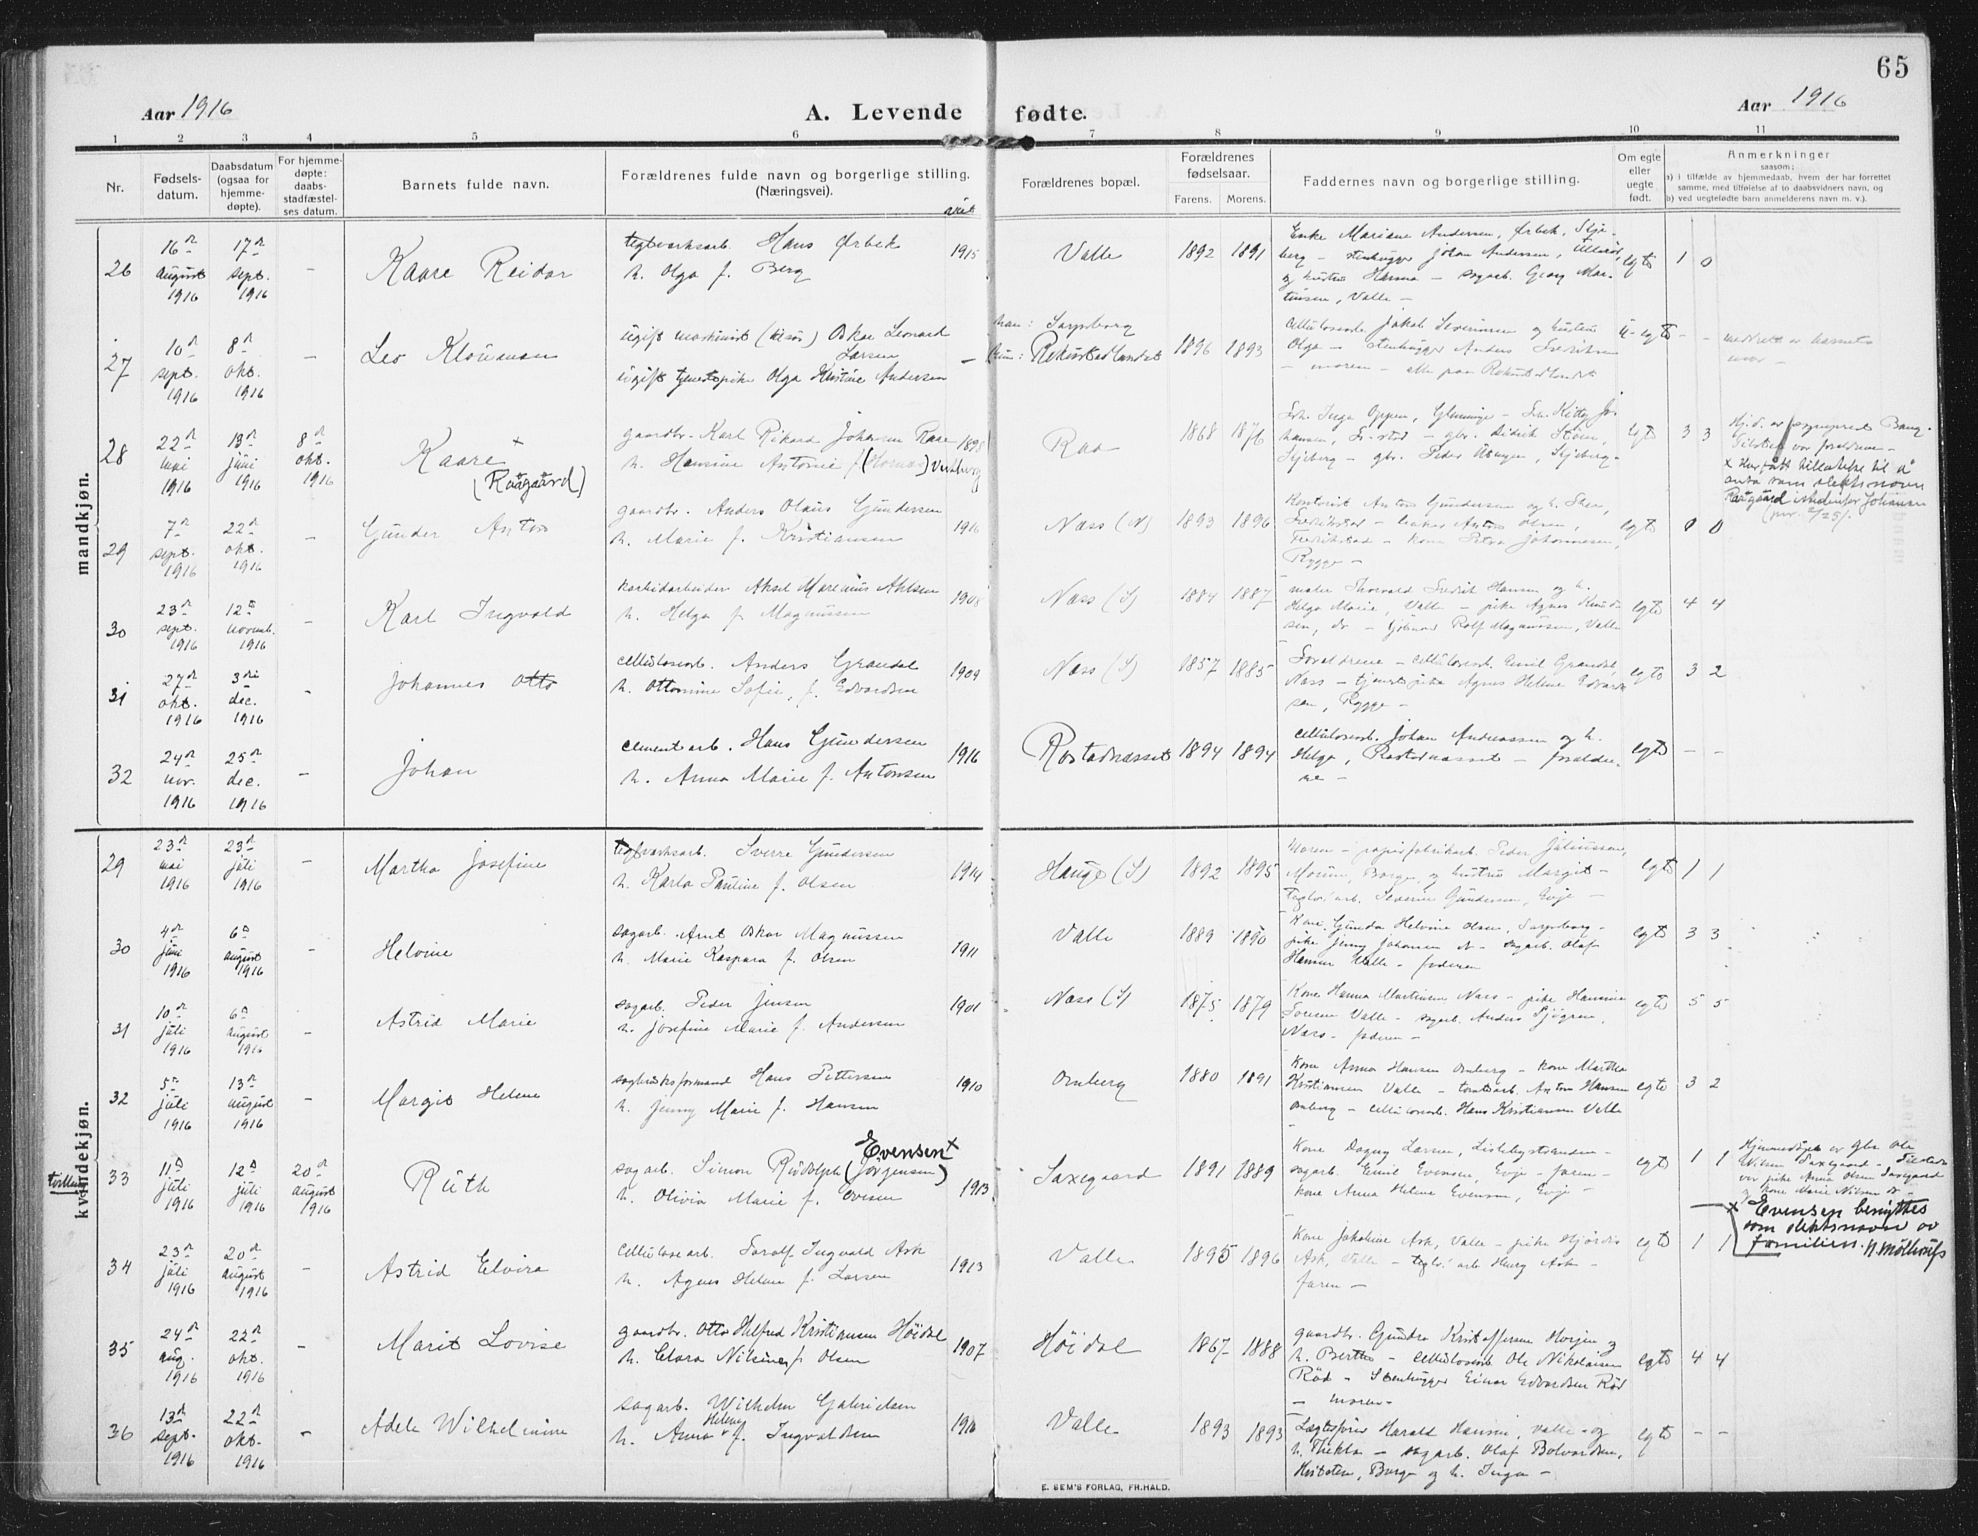 65
Aar 1916
A. Levende fødte.
Aar 1916
1 2 3 4 5 6 7 8 9 10 11
Nr.
Fødsels-
datum.
Daabsdatum
(ogsaa for
hjemme-
døpte).
For hjemme-
døpte:
daabs-
stadfæstel-
ses datum.
Barnets fulde navn.
Forældrenes fulde navn og borgerlige stilling.
(Næringsvei).
viet
Forældrenes bopæl.
Forældrenes
fødselsaar.
Farens. Morens.
Faddernes navn og borgerlige stilling.
Om egte
eller
uegte
født.
Anmerkninger
saasom:
a) i tilfælde av hjemmedaab, hvem der har forrettet
samme, med tilføielse af to daabsvidners navn, og
b) ved uegtefødte barn anmelderens navn m. v.).
mandkjøn.
26
16de august 1916
17de sept. 1916
-
Kaare Reidar
teglverksarb. Hans Ørbek
h. Olga f. Berg
1915
Valle
1892 1891
Enke Mariane Andersen, Ørbek, Skje-
berg - stenhugger Johan Andersen,
og hustru Hanna - sagarb. Georg Mar-
tinsen, Valle -
egte 1 0
27
10de sept. 1916
8de okt. 1916
-
Leo Klouman
ugift maskinist (tilsjøs) Oskar Leonard
Larsen
ugift tjenestepike Olga Kristine Andersen
-
han: Sarpsborg
hun: Rekustadlandet
1896 1893
cellulosearb. Jakob Severinsen og hustru
Olga - stenhugger Anders Fredriksen
- moren - alle paa Rekustadlandet
u-egte - -
meddelt av barnets
mor -
28
22de mai 1916
13de juni 1916
8de okt. 1916
Kaare x
(Raagaard)
gaardbr. Karl Rikard Johansen Raae
h. Hansine Antonie f. (Hornæs)
1898
Raa
1868 1876
Frk. Inga Oppen, Glemminge - Frk. Kitty Jo-
hansen, Fr.stad - gbr. Didrik Støen,
Skjeberg - gbr. Peder Aasgen, Skjeberg -
egte 3 3
Hj.d. av sogneprest Bang.
Tilstede var forældrene -
x Har fått tillatelse til å
anta som slektsnavn
Raagaard istedenfor Johansen
29
7de sept. 1916
22de okt. 1916
-
Gunder Anton
gaardbr. Anders Olaus Gundersen
h. Marie f. Kristiansen
1916
Næss (N)
1893 1896
Kontorist Anton Gundersen og h. Thea,
Fredrikstad - Anton Olsen,
Fredrikstad - kone Petra Johannesen,
Rygge -
egte 0 0
30
23de sept. 1916
12te novemb. 1916
-
Karl Ingvald
karbidarbeider Aksel Marenius Ahlsen
h. Helga f. Magnussen
1908
Næss (S)
1884 1887
maler Thorvald Fredrik Hansen og h.
Helga Marie, Valle - pike Agnes Knud-
sen, do - sjømand Rolf Magnussen, Valle
egte 4 4
31
27de okt. 1916
3die dec. 1916
-
Johannes Otto
cellulosearb. Anders Grandal
h. Ottomine Sofie, f. Edvardsen
1909
Næss (S)
1857 1885
Forældrene - cellulosearb. Emil Grandal,
Næss - tjenestepike Agnes Helene Edvard-
sen, Rygge -
egte 3 2
32
24de nov. 1916
25de dec. 1916
-
Johan
cementarb. Hans Gundersen
h. Anna Marie f. Antonsen
1916
Rostadnæsset
1894 1894
cellulosearb. Johan Andreassen og h.
Helga, Rostadnæsset - forældre-
ne -
egte - -
kvindekjøn.
29
23de mai 1916
23de juli 1916
-
Martha Josefine
teglverksarb. Sverre Gundersen
h. Karla Pauline f. Olsen
1914
Hauge (S)
1892 1895
Moren - papirfabrikarb. Peder Juliussen,
Moum, Borge, og hustru Margit -
teglv.arb. Severin Gundersen, Evje -
egte 1 1
30
4de juni 1916
6te august 1916
-
Helvine
sagarb. Arnt Oskar Magnussen
h. Marie Kaspara f. Olsen
1911
Valle
1889 1890
Kone Gunda Helvine Olsen, Sarpsborg -
pike Jenny Johansen - sagarb. Olaf
Hansen Valle - faderen
egte 3 3
31
10de juli 1916
6te august 1916
-
Astrid Marie
sagarb. Peder Jensen
h. Josefine Marie f. Andersen
1901
Næss (S)
1875 1879
Kone Hanna Martinsen Næss - pike Hansine
Sørensen Valle - sagarb. Anders Sjøgren,
Næss - faderen -
egte 5 5
32
5te juli 1916
13de august 1916
-
Margit Helene
sagbruksformand Hans Pettersen
h. Jenny Marie f. Hansen
1910
Omberg
1880 1891
Kone Anna Hansen Omberg - kone Martha
Kristiansen Valle - tomtearb. Anton Hansen
Omberg - cellulosearb. Hans Kristiansen Valle
egte 3 2
tvilling
33
11te juli 1916
12te juli 1916
20de august 1916
Ruth
Evensen x
sagarb. Simon Rudolph (Jørgensen)
h. Olivia Marie f. Evensen
1913
Saxegaard
1891 1889
Kone Dagny Larsen, Lislebystranden -
sagarb. Emil Evensen, Evje - faren -
kone Anna Helene Evensen, Evje -
egte 1 1
Hjemmedøpt av gbr. Ole
Nilsen Saxegaard - Tilstede
var pike Anna Olsen Saxegaard
og kone Marie Nilsen do -
x Evensen benyttes
som slektsnavn av
familien.
34
23de juli 1916
20de august 1916
-
Astrid Elvira
cellulosearb. Toralf Ingvald Ask
h. Agnes Helene f. Larsen
1913
Valle
1895 1896
Kone Jakobine Ask, Valle - pike Hjørdis
Ask, Valle - teglv.arb Harry Ask -
faren -
egte 1 1
35
24de aug. 1916
22de okt. 1916
-
Marit Lovise
gaardbr. Otto Hilfred Kristiansen Høidal
h. Clara Nilsine f. Olsen
1907
Høidal
1867 1888
gaardbr. Gunder Kristoffersen og
h. Berthe - cellulosearb Ole Nikolaisen
Rød - Stenhugger Einar Edvardsen Rød
- moren -
egte 4 4
36
13de sept. 1916
22de okt. 1916
-
Adele Wilhelmine
sagarb. Wilhelm Gabrielsen
h. Anna Helene f. Ingvaldsen
1916
Valle
1893 1893
Lægtespør Harald Hansen, Valle - og
h. Thekla - sagarb. Olaf Bolvardsen,
Borge og h. Inga -
egte - -
E. SEM'S FORLAG, FR.HALD.